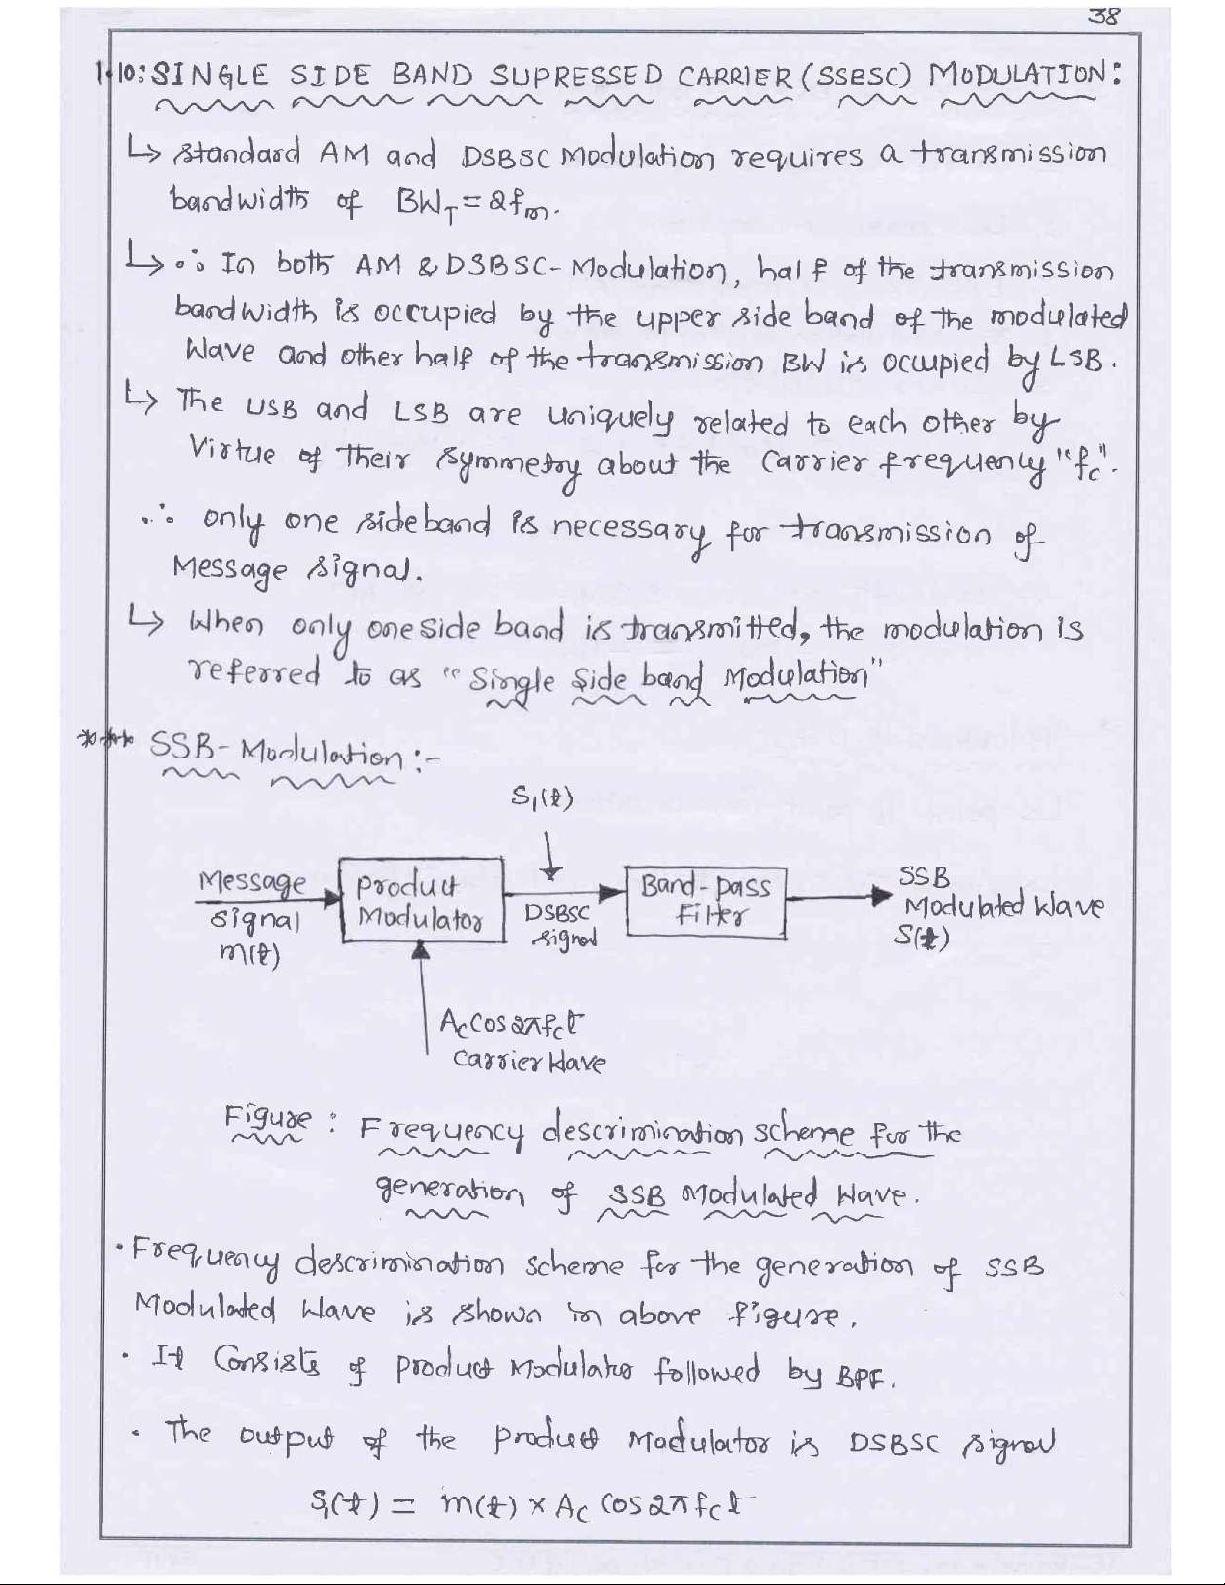 38
1.10: SINGLE SIDE BAND SUPRESSED CARRIER (SSBSC) MODULATION:
↳ Standard AM and DSBSC Modulation requires a transmission
bandwidth of BW_T = 2f_m.
↳ ∴ In both AM & DSBSC-Modulation, half of the transmission
bandwidth is occupied by the upper side band of the modulated
Wave and other half of the transmission BW is occupied by LSB.
↳ The USB and LSB are uniquely related to each other by
Virtue of their symmetry about the Carrier frequency "f_c".
∴ only one sideband is necessary for transmission of
Message signal.
↳ When only one side band is transmitted, the modulation is
referred to as "Single Side band Modulation"
*** SSB-Modulation :-
S₁(t)
Message
signal
m(t)
product
Modulator
DSBSC
signal
Band-pass
Filter
SSB
Modulated Wave
S(t)
A_c Cos 2πf_c t
Carrier Wave
Figure : Frequency descrimination scheme for the
generation of SSB Modulated Wave.
• Frequency descrimination scheme for the generation of SSB
Modulated Wave is shown in above figure.
• It Consists of product Modulator followed by BPF.
• The output of the product Modulator is DSBSC signal
S₁(t) = m(t) × A_c Cos 2πf_c t